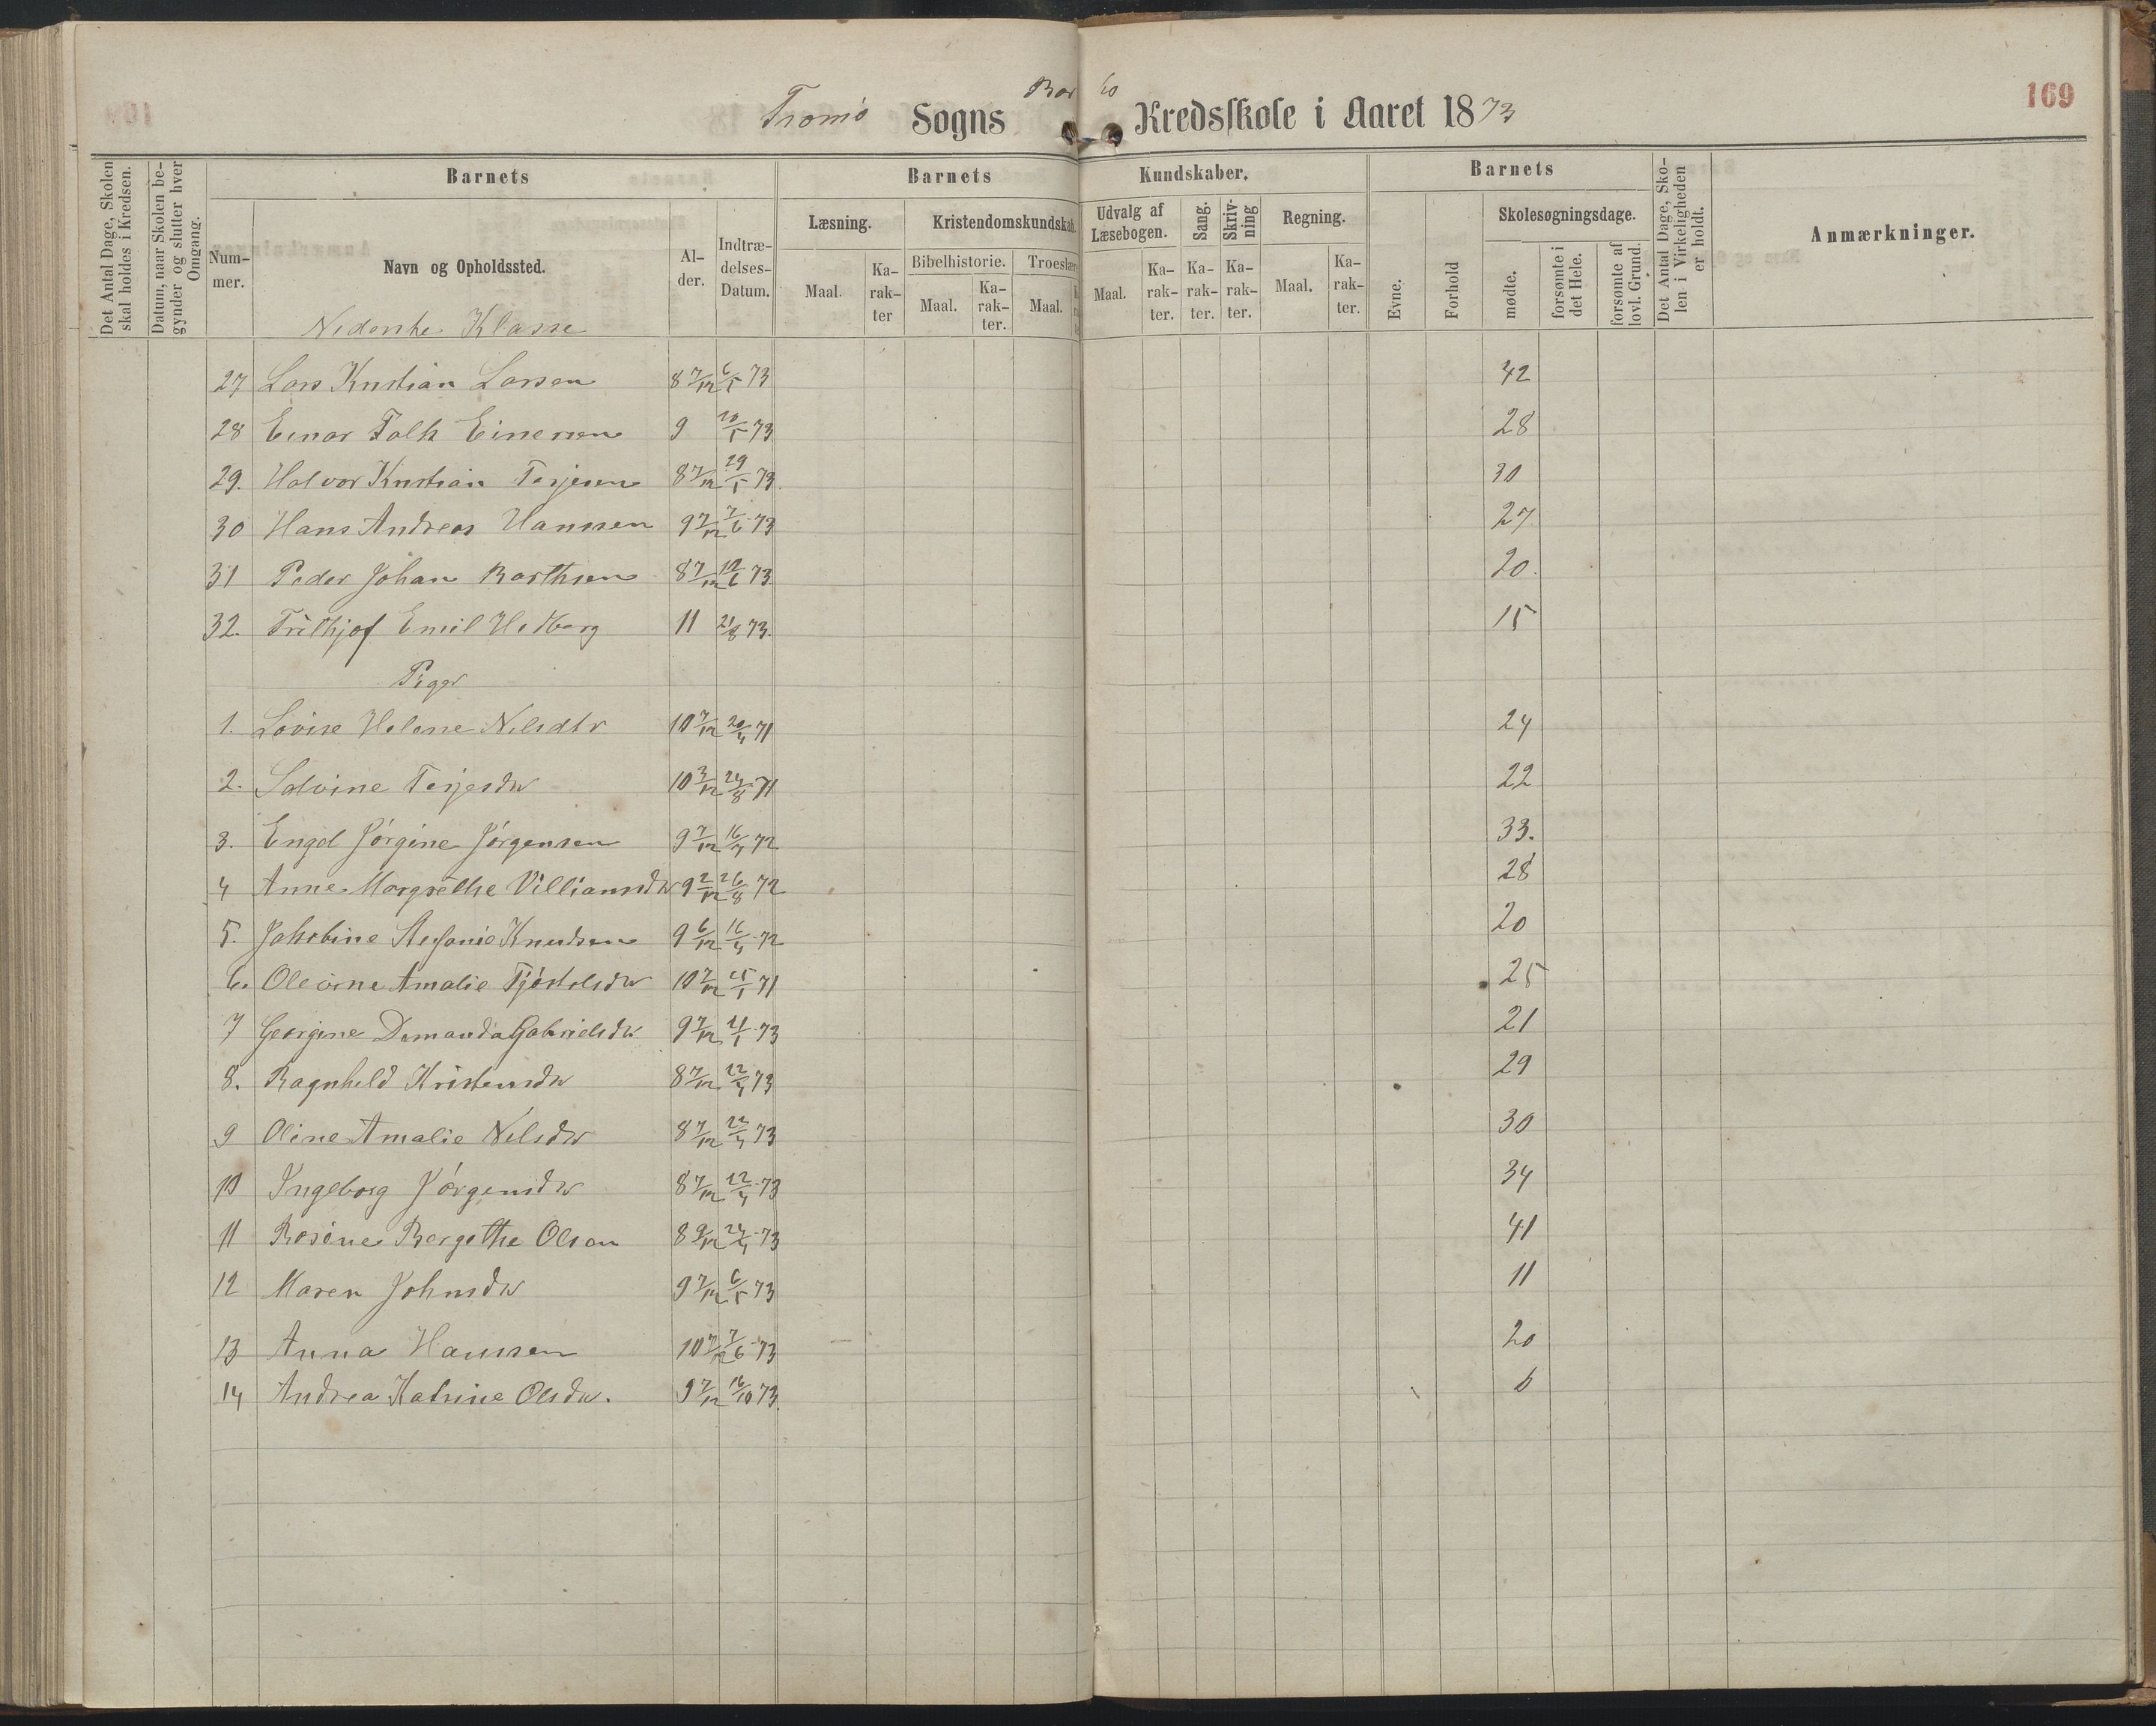 169
Tromø Sogns Kredsskole i Aaret 1873
Det Antal Dage, Skolen skal holdes i Kredsen.
Datum, naar Skolen begynder og slutter hver Omgang.
Barnets
Nummer.
Navn og Opholdssted.
Alder.
Indtrædelses-Datum.
Barnets Kundskaber.
Læsning.
Maal.
Karakter
Kristendomskundskab.
Bibelhistorie.
Maal.
Karakter.
Troeslære
Maal.
Udvalg af Læsebogen.
Maal.
Karakter.
Sang.
Karakter.
Skrivning
Karakter.
Regning.
Maal.
Karakter.
Barnets
Evne.
Forhold
Skolesøgningsdage.
mødte.
forsømte i det Hele.
forsømte af lovl. Grund.
Det Antal Dage, Skolen i Virkeligheden er holdt.
Anmærkninger.
Nederste Klasse
27 Lars Kristian Larsen 8 7/12 6/5 73 42
28 Einar Falk Einersen 9 20/5 73 28
29. Halvor Kristian Terjesen 8 7/12 29/5 73. 30
30 Hans Andreas Hanssen 9 7/12 7/6 73 27
31 Peder Johan Barthsen 8 7/12 19/6 73 20.
32. Frithjof Emil 11 21/8 73. 15
Piger
1. Lovise Helene Nilsdtr 10 7/12 20/4 71 24
2. Salvine Terjesdtr 10 3/12 24/8 71 22
3. Engel Jørgine Jørgensen 9 7/12 16/7 72 33.
4 Anne Margrethe Villiamsdtr 9 2/12 26/8 72 28
5. Jakobine Stefanie Knudsen 9 6/12 16/4 72 20
6. Olevine Amalie Tjøstolsdtr 10 7/12 25/1 71 25
7 Georgine Damanda Gabrielsdtr 9 7/12 21/1 73 21
8. Ragnhild Kristensdtr 8 7/12 22/4 73 29
9 Oline Amalie Nilsdtr 8 7/12 22/4 73 30
10 Ingeborg Jørgensdtr 8 7/12 22/4 73 34
11 Rosine Bergethe Olsen 8 9/12 24/4 73 41
12 Maren Johnsdtr 9 7/12 6/5 73 11
13 Anna Hanssen 10 7/12 7/6 73 20
14 Andrea Katrine Olsdtr. 9 7/12 16/10 73. 6